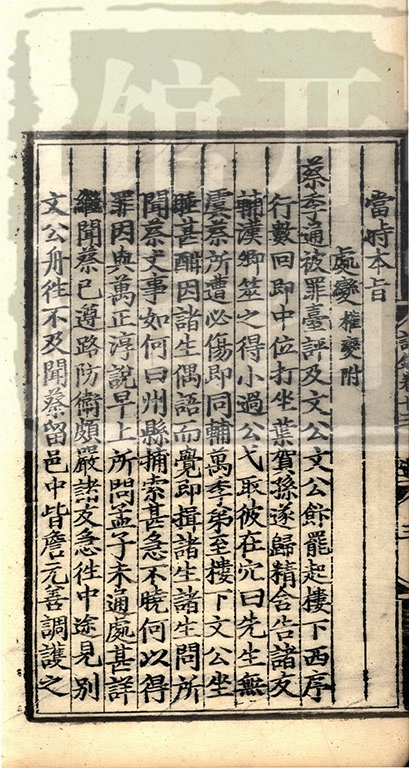 當時本旨
處變 權變附
蔡季通被罪臺評及文公文公飰罷起樓下西序
行數回即中位打坐葉賀孫遂歸精舍告諸友
輔漢卿筮之得小過公弋取彼在穴曰先生無
虞蔡所遭必傷即同輔萬季弟至樓下文公坐
睡甚酣因諸生偶語而覺即揖諸生諸生問所
聞蔡丈事如何曰州縣捕索甚急不曉何以得
罪因與萬正淳說早上所問孟子未通處甚詳
繼聞蔡已遵路防衛頗嚴諸友急徃中途見別
文公舟徃不及聞蔡留邑中皆詹元善調護之